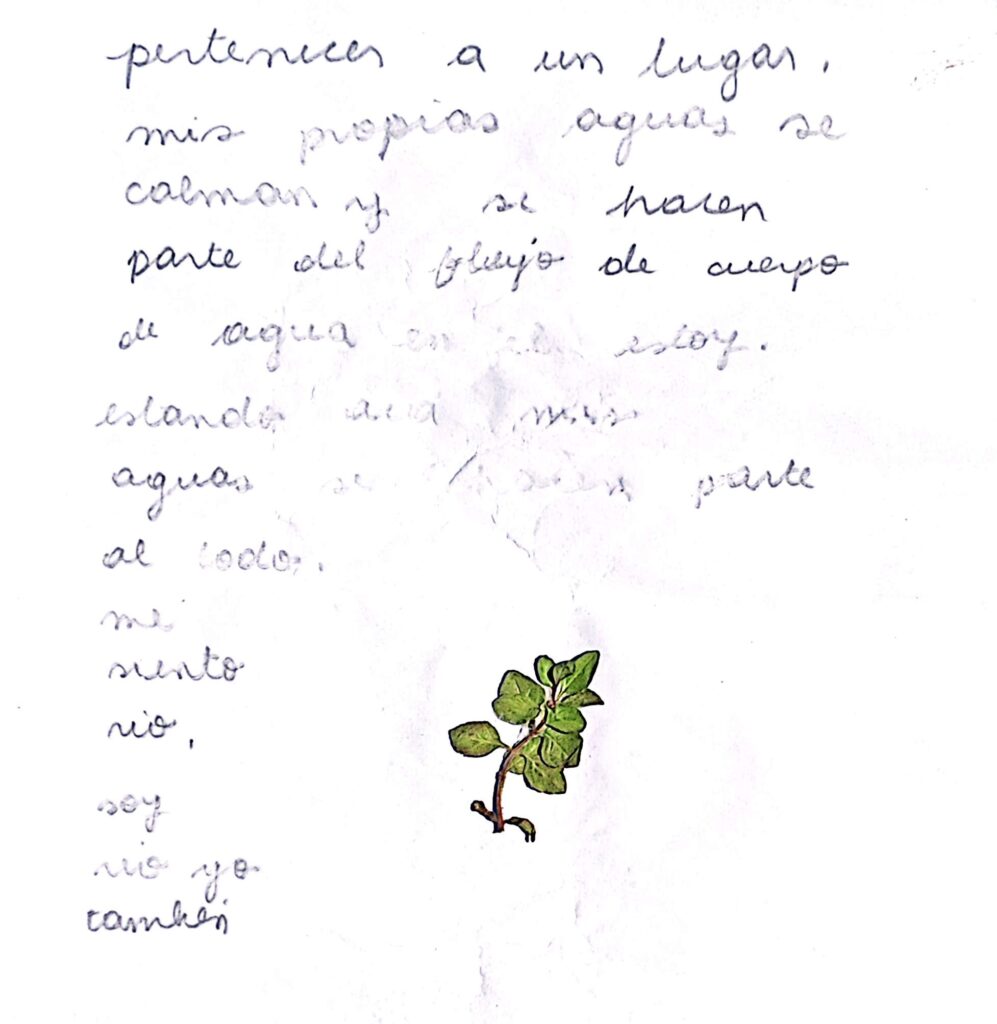 pertenecer a un lugar.
mis propias aguas se
calman y se hacen
parte del flujo de cuerpo
de agua en el estoy.
estando acá mis
aguas se hacen parte
al todo.
me
siento
rio,
soy
rio yo
también